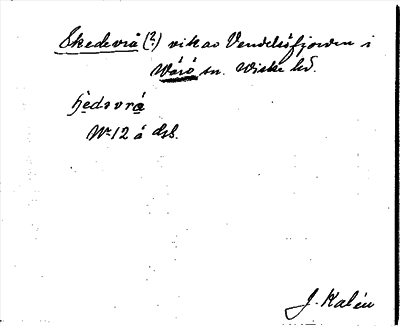 Skedevrå (?) vik av Vendelsöfjorden i
Värö sn. Wiske hd.
hedəvrå
W. 12 å ds.
J. Kalén